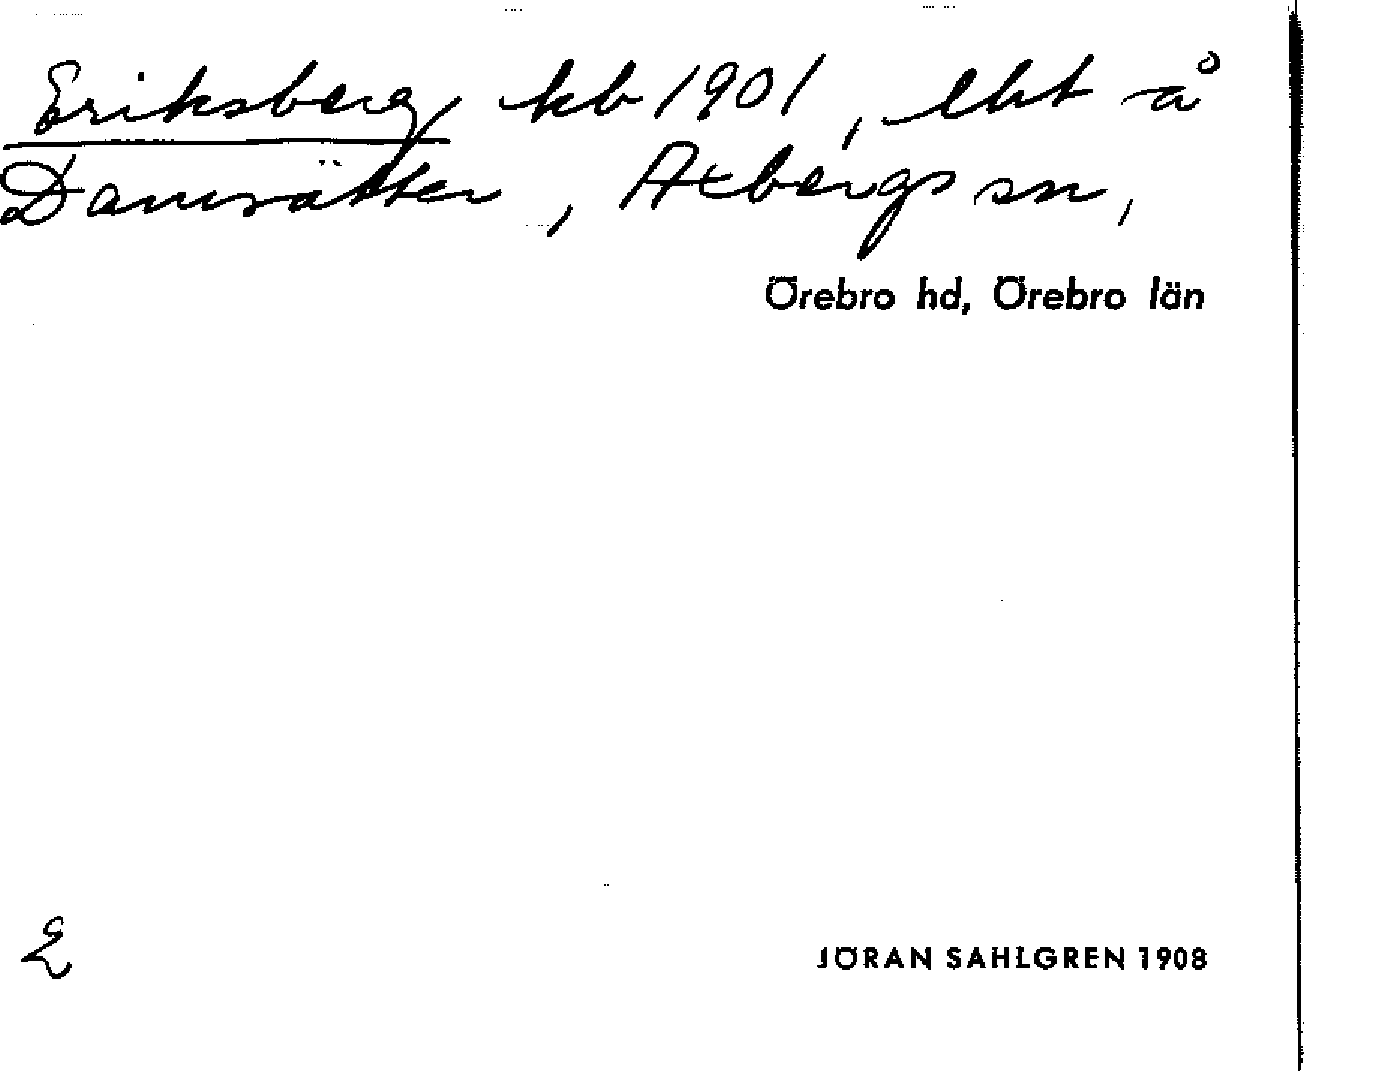 Eriksberg kb 1901, lht å
Damsätter, Axbergs sn,
Örebro hd, Örebro län
E
JÖRAN SAHLGREN 1908